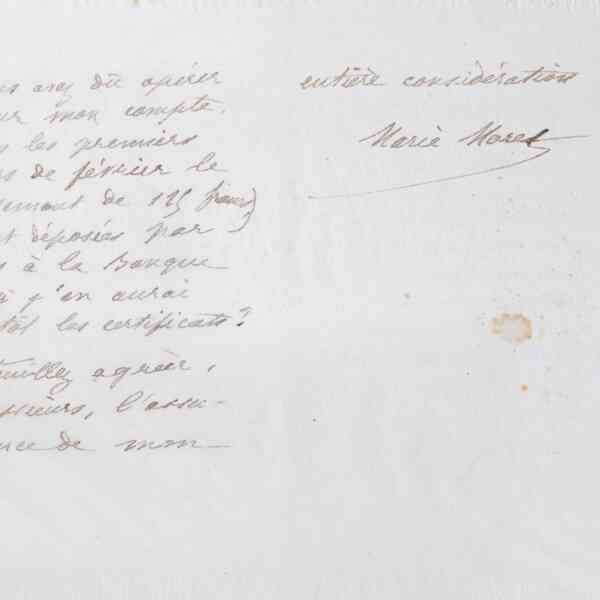 us avez dû opérer
ur mon compte.
s les premiers
rs de février le
ement de 125 francs)
t déposées par
s à la Banque
j'en aurai
tôt les certificats?
euillez agréer,
ssieurs, l'assu-
nce de mon
entière considération
Marie Moret